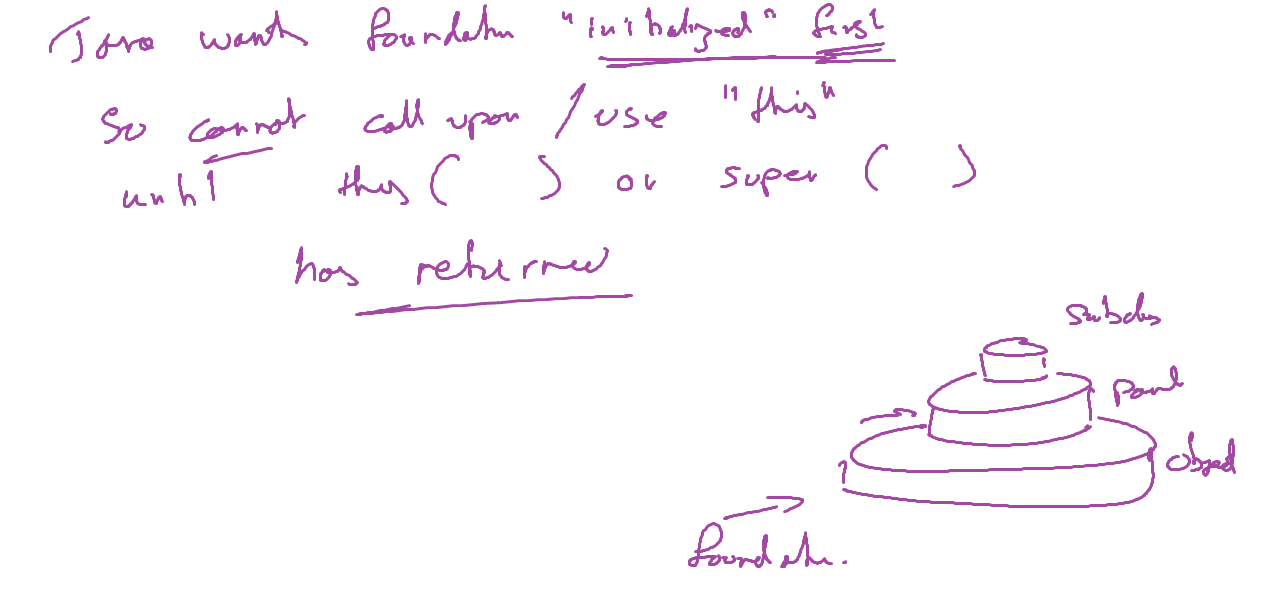 Java wants foundatn "initialized" first
So cannot call upon / use "this"
until this ( ) or super ( )
has returned
Subclass
Parent
Object
foundatn.